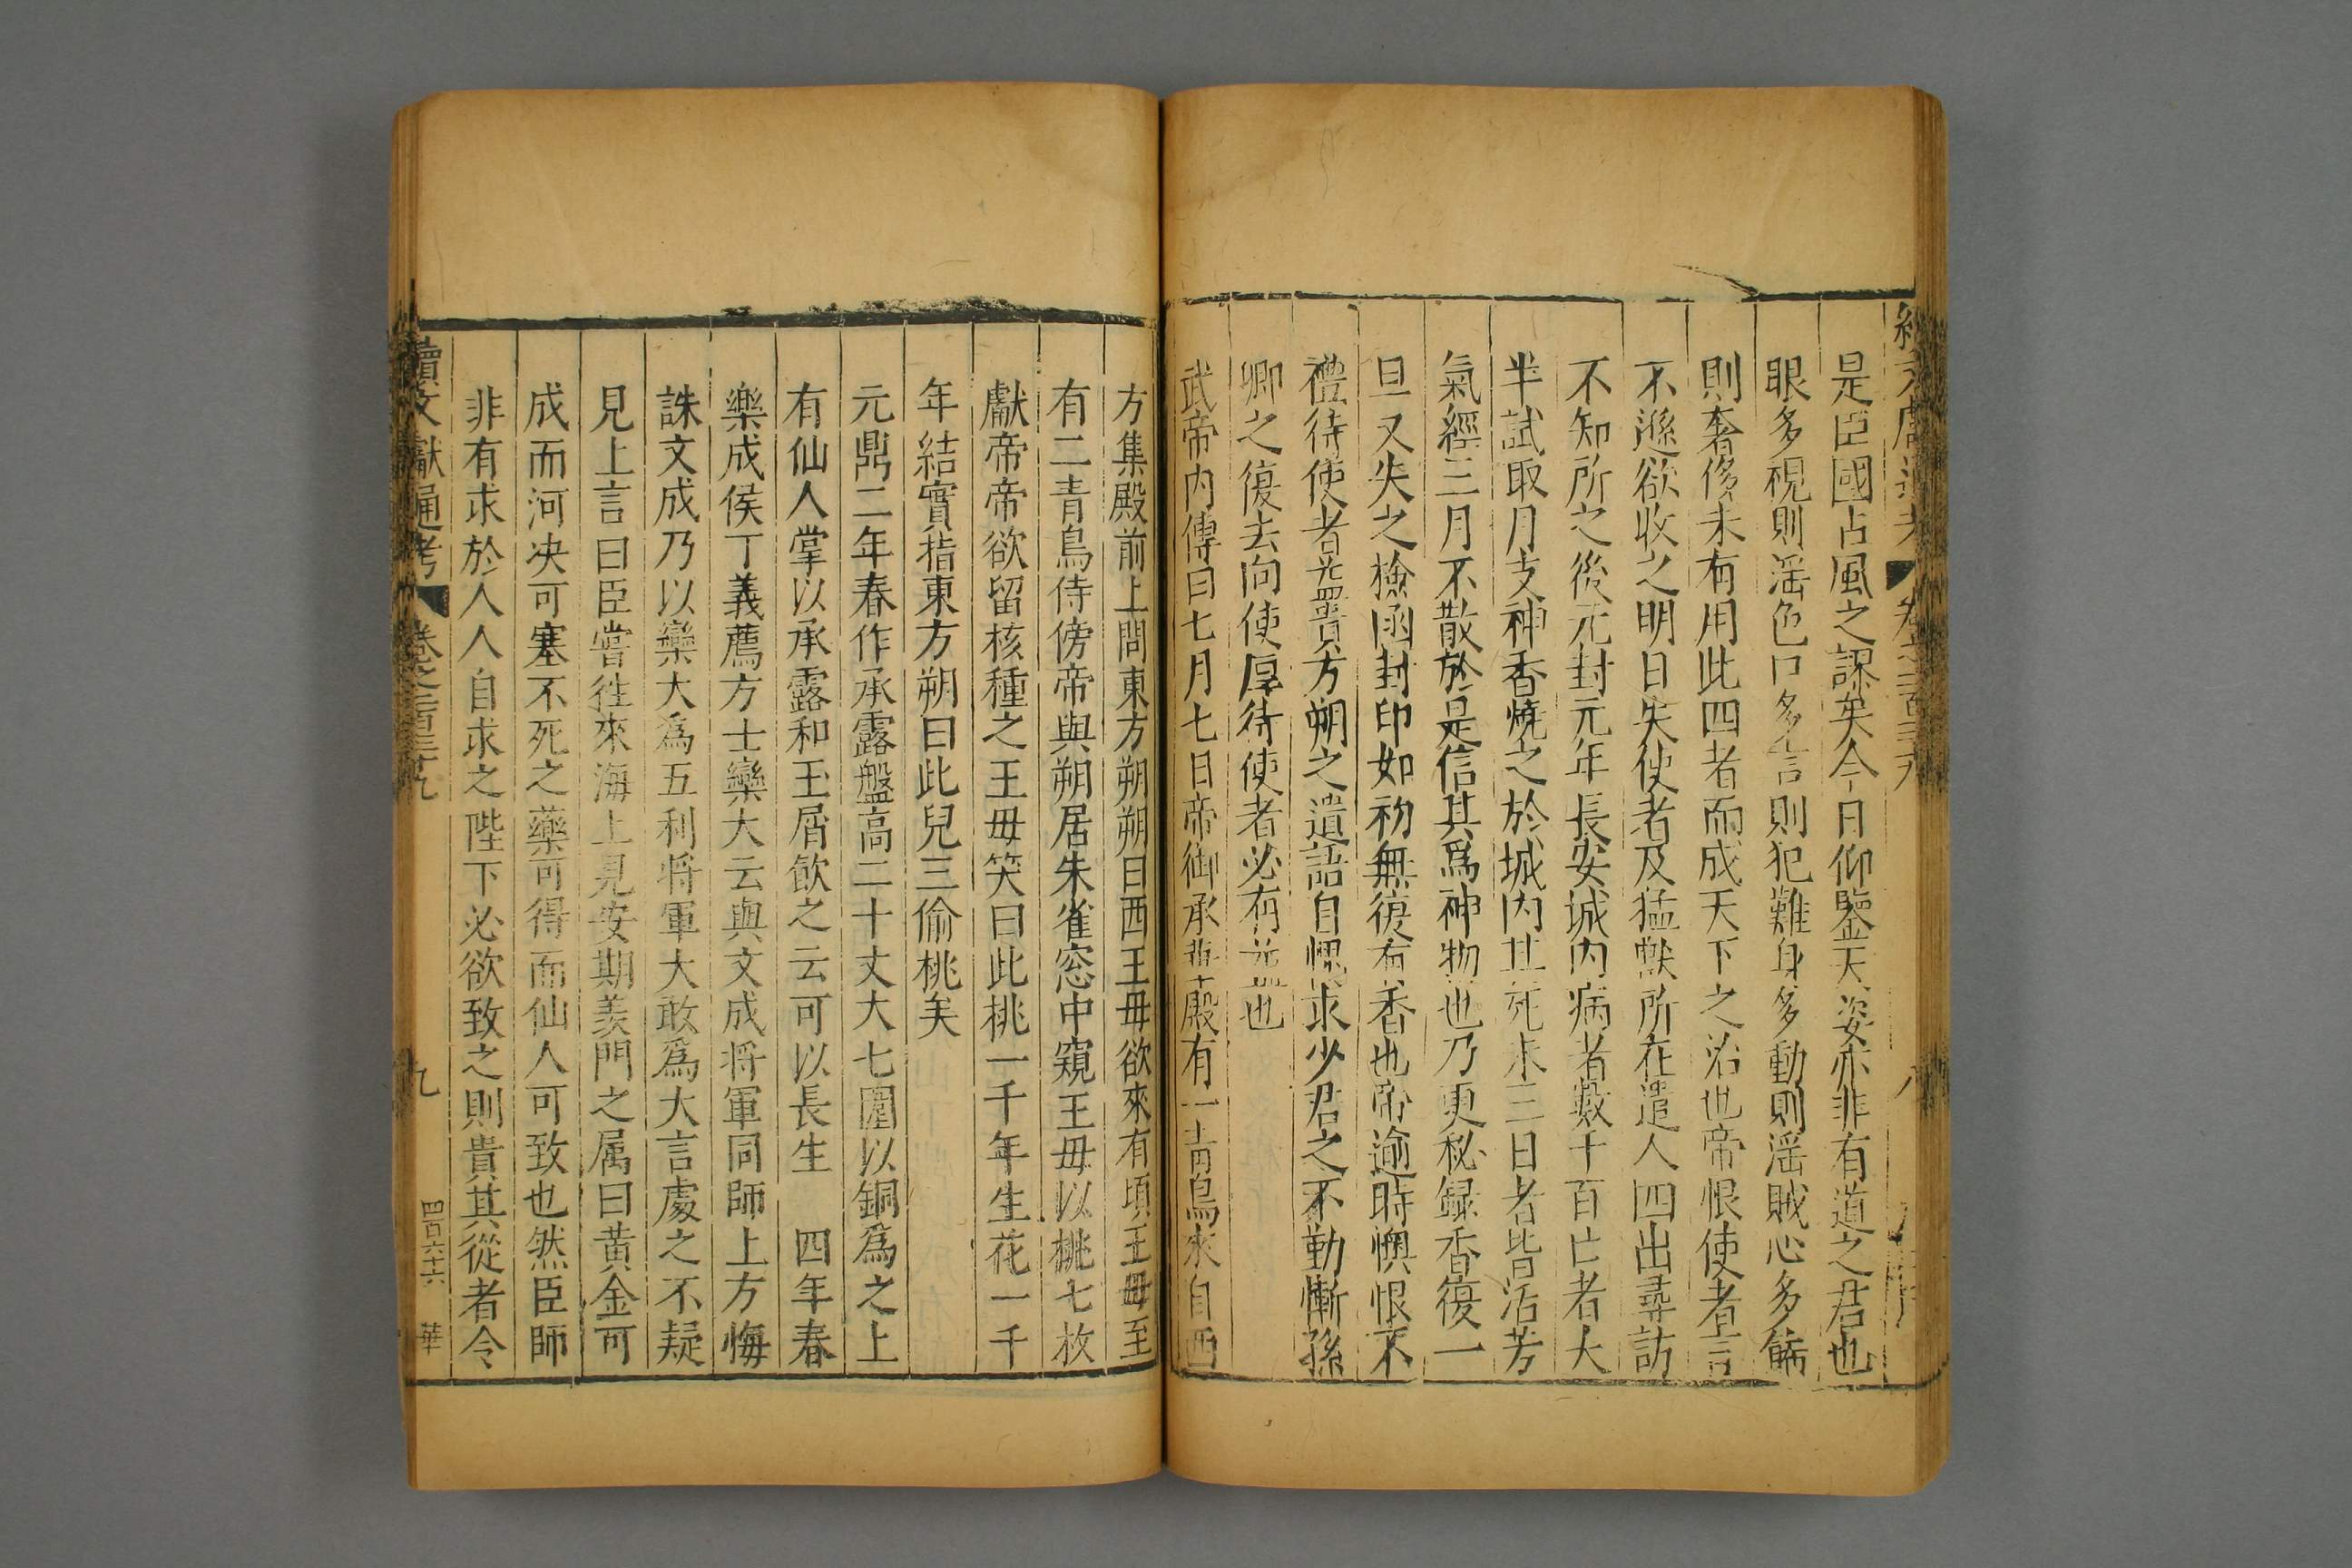 是臣國占風之謬矣今日仰鑒天姿亦非有道之君也
眼多視則滛色口多言則犯難身多動則滛賊心多餙
則奢侈未有用此四者而成天下之治也帝恨使者言
不遜欲收之明日失使者及猛獸所在遣人四出尋訪
不知所之後元封元年長安城内病者數千百亡者大
半試取月支神香燒之於城内其死未三日者皆活芳
氣經三月不散於是信其爲神物也乃更秘録香復一
旦又失之檢函封印如初無復有香也帝逾時懊恨不
禮待使者益貴方朔之遺語自愧求少君之不勤慚孫
卿之復去向使厚待使者必有益也
武帝内傳曰七月七日帝御承華殿有一青鳥來自西
方集殿前上問東方朔朔曰西王毋欲來有頃王毋至
有二青鳥侍傍帝與朔居朱雀窓中窺王毋以桃七枚
獻帝帝欲留核種之王毋笑曰此桃一千年生花一千
年結實指東方朔曰此兒三偷桃矣
元鼎二年春作承露盤高二十丈大七圍以銅爲之上
有仙人掌以承露和玉屑飲之云可以長生 四年春
樂成侯丁義薦方士欒大云與文成将軍同師上方悔
誅文成乃以欒大爲五利将軍大敢爲大言處之不疑
見上言曰臣嘗徃來海上見安期羨門之属曰黄金可
成而河决可塞不死之藥可得而仙人可致也然臣師
非有求於人人自求之陛下必欲致之則貴其從者令
續文獻通考 卷之二百三十九 九 四百六十六 華